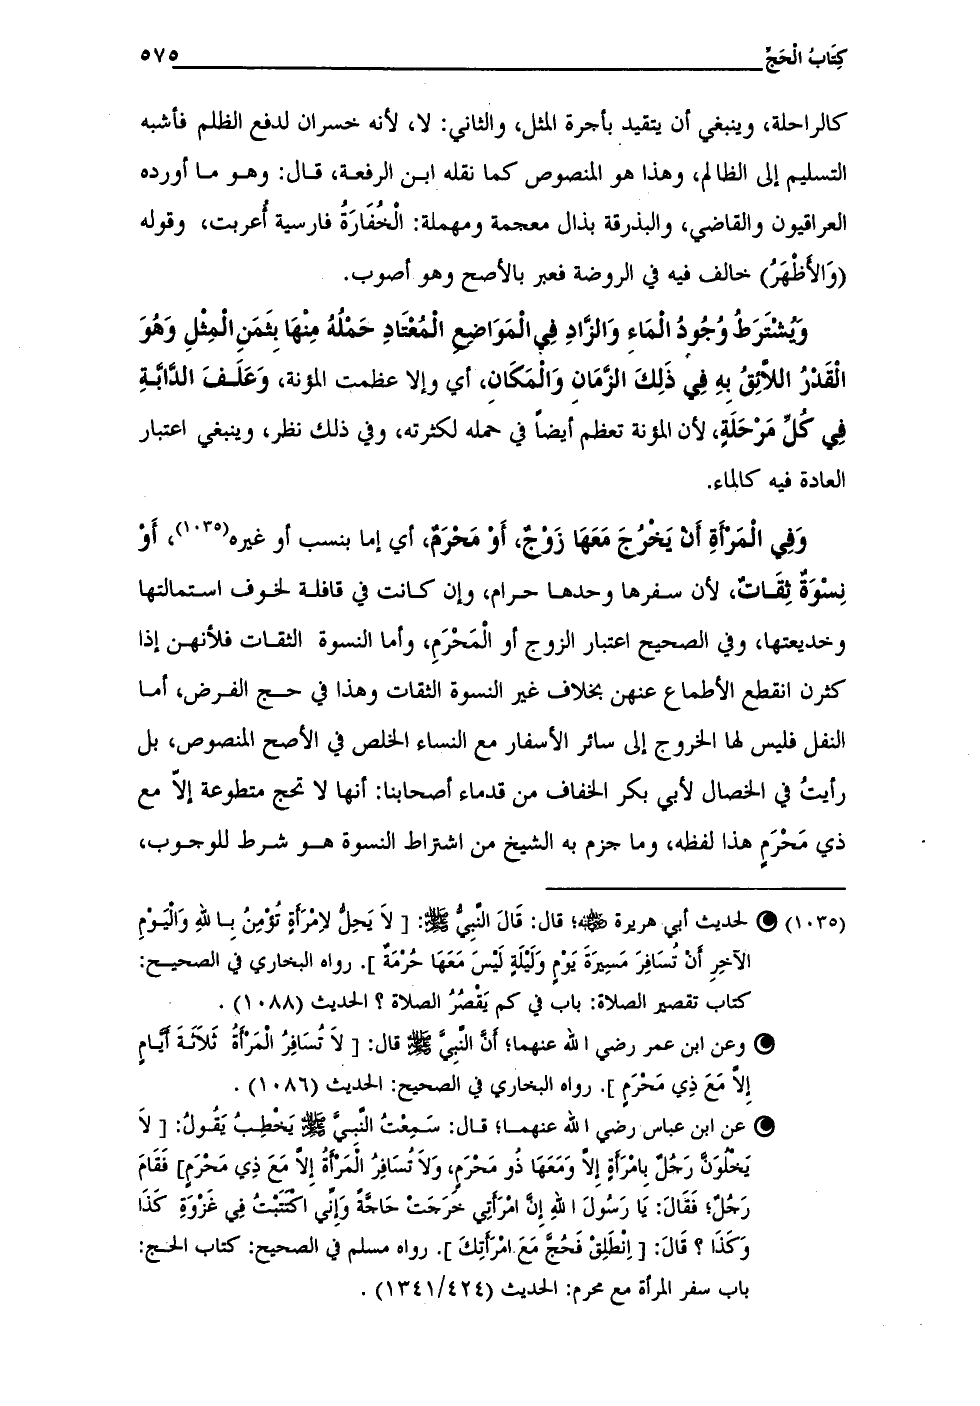 كِتَابُ الْحَجِّ ٥٧٥
كالراحلة، وينبغي أن يتقيد بأجرة المثل، والثاني: لا، لأنه خسران لدفع الظلم فأشبه
التسليم إلى الظالم، وهذا هو المنصوص كما نقله ابن الرفعة، قال: وهو ما أورده
العراقيون والقاضي، والبذرقة بذال معجمة ومهملة: الْخُفَارَةُ فارسية أُعربت، وقوله
(وَالأَظْهَرُ) خالف فيه في الروضة فعبر بالأصح وهو أصوب.
وَيُشْتَرَطُ وُجُودُ الْمَاءِ وَالزَّادِ فِي الْمَوَاضِعِ الْمُعْتَادِ حَمْلُهُ مِنْهَا بِثَمَنِ الْمِثْلِ وَهُوَ
الْقَدْرُ اللاَّئِقُ بِهِ فِي ذَلِكَ الزَّمَانِ وَالْمَكَانِ، أي وإلا عظمت المؤنة، وَعَلَفَ الدَّابَّةِ
فِي كُلِّ مَرْحَلَةٍ، لأن المؤنة تعظم أيضاً في حمله لكثرته، وفي ذلك نظر، وينبغي اعتبار
العادة فيه كالماء.
وَفِي الْمَرْأَةِ أَنْ يَخْرُجَ مَعَهَا زَوْجٌ، أَوْ مَحْرَمٌ، أي إما بنسب أو غيره(١٠٣٥)، أَوْ
نِسْوَةٌ ثِقَاتٌ، لأن سفرها وحدها حرام، وإن كانت في قافلة لخوف استمالتها
وخديعتها، وفي الصحيح اعتبار الزوج أو الْمَحْرَمِ، وأما النسوة الثقات فلأنهن إذا
كثرن انقطع الأطماع عنهن بخلاف غير النسوة الثقات وهذا في حج الفرض، أما
النفل فليس لها الخروج إلى سائر الأسفار مع النساء الخلص في الأصح المنصوص، بل
رأيتُ في الخصال لأبي بكر الخفاف من قدماء أصحابنا: أنها لا تحج متطوعة إلاَّ مع
ذي مَحْرَمٍ هذا لفظه، وما جزم به الشيخ من اشتراط النسوة هو شرط للوجوب،
(١٠٣٥) لحديث أبي هريرة ﷺ؛ قال: قَالَ النَّبِيُّ ﷺ: [ لاَ يَحِلُّ لاِمْرَأَةٍ تُؤْمِنُ بِاللهِ وَالْيَوْمِ
الآخِرِ أَنْ تُسَافِرَ مَسِيرَةَ يَوْمٍ وَلَيْلَةٍ لَيْسَ مَعَهَا حُرْمَةٌ ]. رواه البخاري في الصحيح:
كتاب تقصير الصلاة: باب في كم يَقْصُرُ الصلاة ؟ الحديث (١٠٨٨) .
وعن ابن عمر رضي الله عنهما؛ أَنَّ النَّبِيَّ ﷺ قال: [ لاَ تُسَافِرُ الْمَرْأَةُ ثَلاَثَةَ أَيَّامٍ
إِلاَّ مَعَ ذِي مَحْرَمٍ ]. رواه البخاري في الصحيح: الحديث (١٠٨٦) .
عن ابن عباس رضي الله عنهما؛ قال: سَمِعْتُ النَّبِيَّ ﷺ يَخْطِبُ يَقُولُ: [ لاَ
يَخْلُوَنَّ رَجُلٌ بِامْرَأَةٍ إِلاَّ وَمَعَهَا ذُو مَحْرَمٍ، وَلاَ تُسَافِرُ الْمَرْأَةُ إِلاَّ مَعَ ذِي مَحْرَمٍ] فَقَامَ
رَجُلٌ؛ فَقَالَ: يَا رَسُولَ اللهِ إِنَّ امْرَأَتِي خَرَجَتْ حَاجَّةً وَإِنِّي اكْتُتِبْتُ فِي غَزْوَةِ كَذَا
وَكَذَا ؟ قَالَ: [ اِنْطَلِقْ فَحُجَّ مَعَ امْرَأَتِكَ ]. رواه مسلم في الصحيح: كتاب الحج:
باب سفر المرأة مع محرم: الحديث (١٣٤١/٤٢٤) .